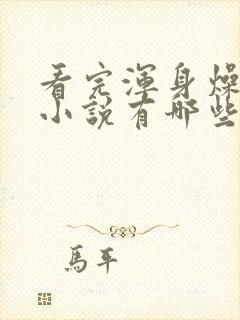 看完渾身燥
小說有哪些
馬平